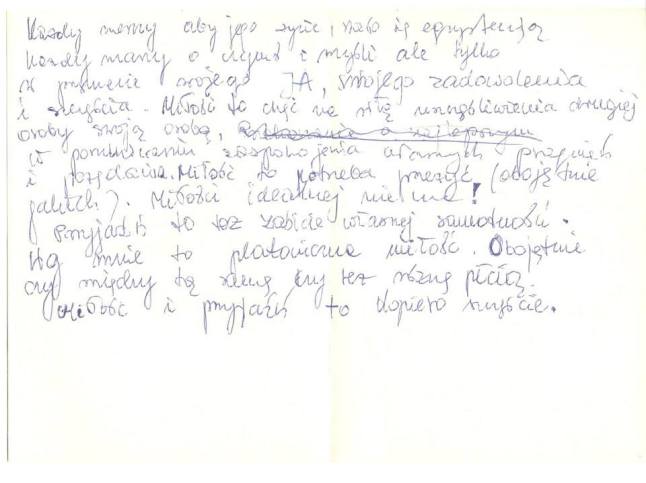 Każdy aby jego życie, egzystencją
każdy marzy o czymś i myśli ale tylko
w swojego JA, swojego zadowolenia
i szczęścia. Miłość to chęć na siłę uszczęśliwienia drugiej
osoby swoją osobą,
w zaspokojenia własnych
i pożądania. Miłość to potrzeba przeżyć (obojętnie
jakich). Miłości idealnej nie ma!
Przyjaźń to też zabicie własnej samotności.
Wg mnie to platoniczna miłość. Obojętnie
czy między tą samą czy też różną płcią.
Miłość i przyjaźń to dopiero szczęście.